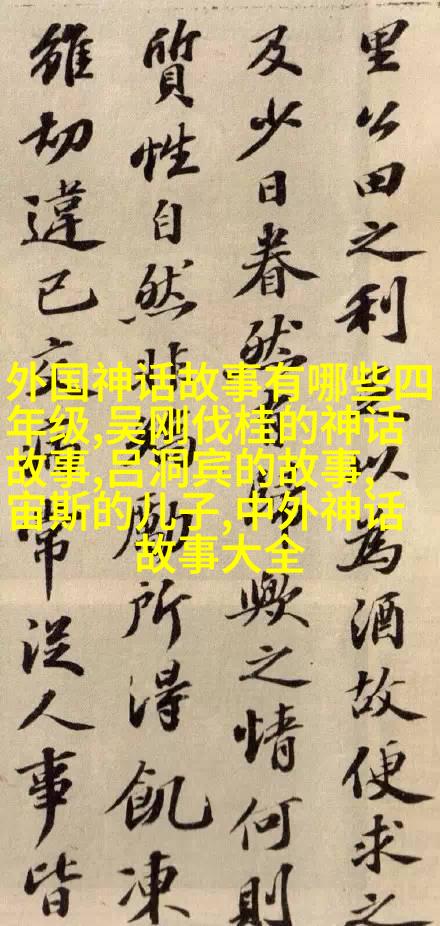 里公田之利以為酒故便求之
及少日眷然歟之情何則
質性自然非勵所得飢凍
雖切違己交常從人事皆
外国神话故事有哪些四
年级,吴刚伐桂的神话
故事,吕洞宾的故事,
宙斯的儿子,中外神话
故事大全